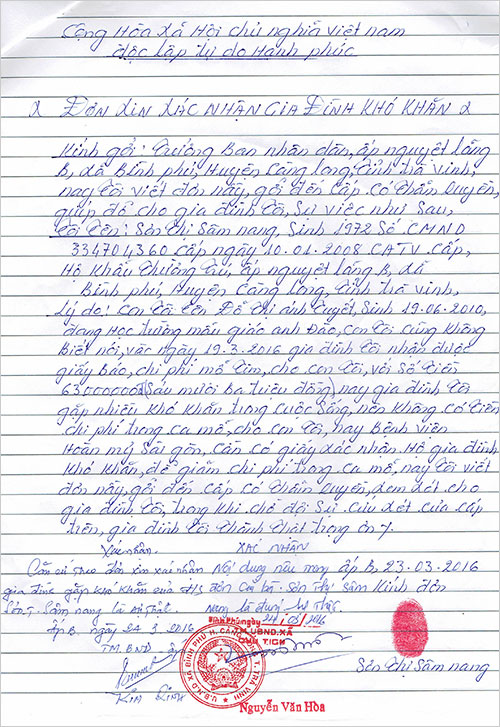 Cộng Hòa Xã Hội chủ nghĩa việt nam
độc lập tự do Hạnh phúc
ĐƠN XIN XÁC NHẬN GIA ĐÌNH KHÓ KHĂN
Kính gởi: Trưởng Ban nhân dân, ấp nguyệt lãng
B, xã Bình phú, Huyện Càng long, Tỉnh trà vinh,
nay Tôi viết đơn nầy, gởi đến cấp có thẩm quyền,
giúp đở cho gia đình Tôi, Sự việc như Sau,
Tôi Tên: Sơn Thị Sâm nang, Sinh 1972 Số CMND
334704360 cấp ngày 10.01.2008 CATV cấp,
Hộ Khẩu Thường Trú, ấp nguyệt lãng B, xã
Bình phú, Huyện Càng long, Tỉnh trà vinh,
Lý do: Con Tôi Tên Đỗ Thị ánh Tuyết, Sinh 19.06.2010,
đang Học trường mẫu giáo anh Đào, Con Tôi cũng Không
Biết nói, vào ngày 19.3.2016 gia đình Tôi nhận được
giấy Báo, chi phí mổ Tim, cho con Tôi, với Số Tiền
63000000đ (Sáu mươi Ba triệu đồng), nay gia đình Tôi
gặp nhiều Khó Khăn trong cuộc Sống, nên Không có Tiền
chi phí trong ca mổ, cho con Tôi, nay Bệnh viện
Hoàn mỹ Sài gòn, cần có giấy xác nhận Hộ gia đình
Khó Khăn, để giảm chi phí trong ca mổ, nay Tôi viết
đơn nầy, gởi đến cấp có Thẩm quyền, xem xét cho
gia đình Tôi, trong Khi chờ đợi Sự cứu xét của cấp
trên, gia đình Tôi Thành Thật trọng ơn ./.
Xác nhận. XÁC NHẬN
Căn cứ theo đơn xin xác nhận Nội dung nêu trong ấp B, 23-03-2016
gia đình gặp khó khăn của đơn của bà Sơn Thị Sâm Kính đơn
Sơn T. Sâm nang là sự thật. Nang là đúng sự thật.
Ấp B ngày 24.3.2016 Bình Phú ngày 24/03/2016
TM. BND ấp TM. UBND. XÃ
CHỦ TỊCH
U.B.N.D XÃ BÌNH PHÚ H. CÀNG LONG T. TRÀ VINH
Sơn Thị Sâm nang
Nguyễn Văn Hòa